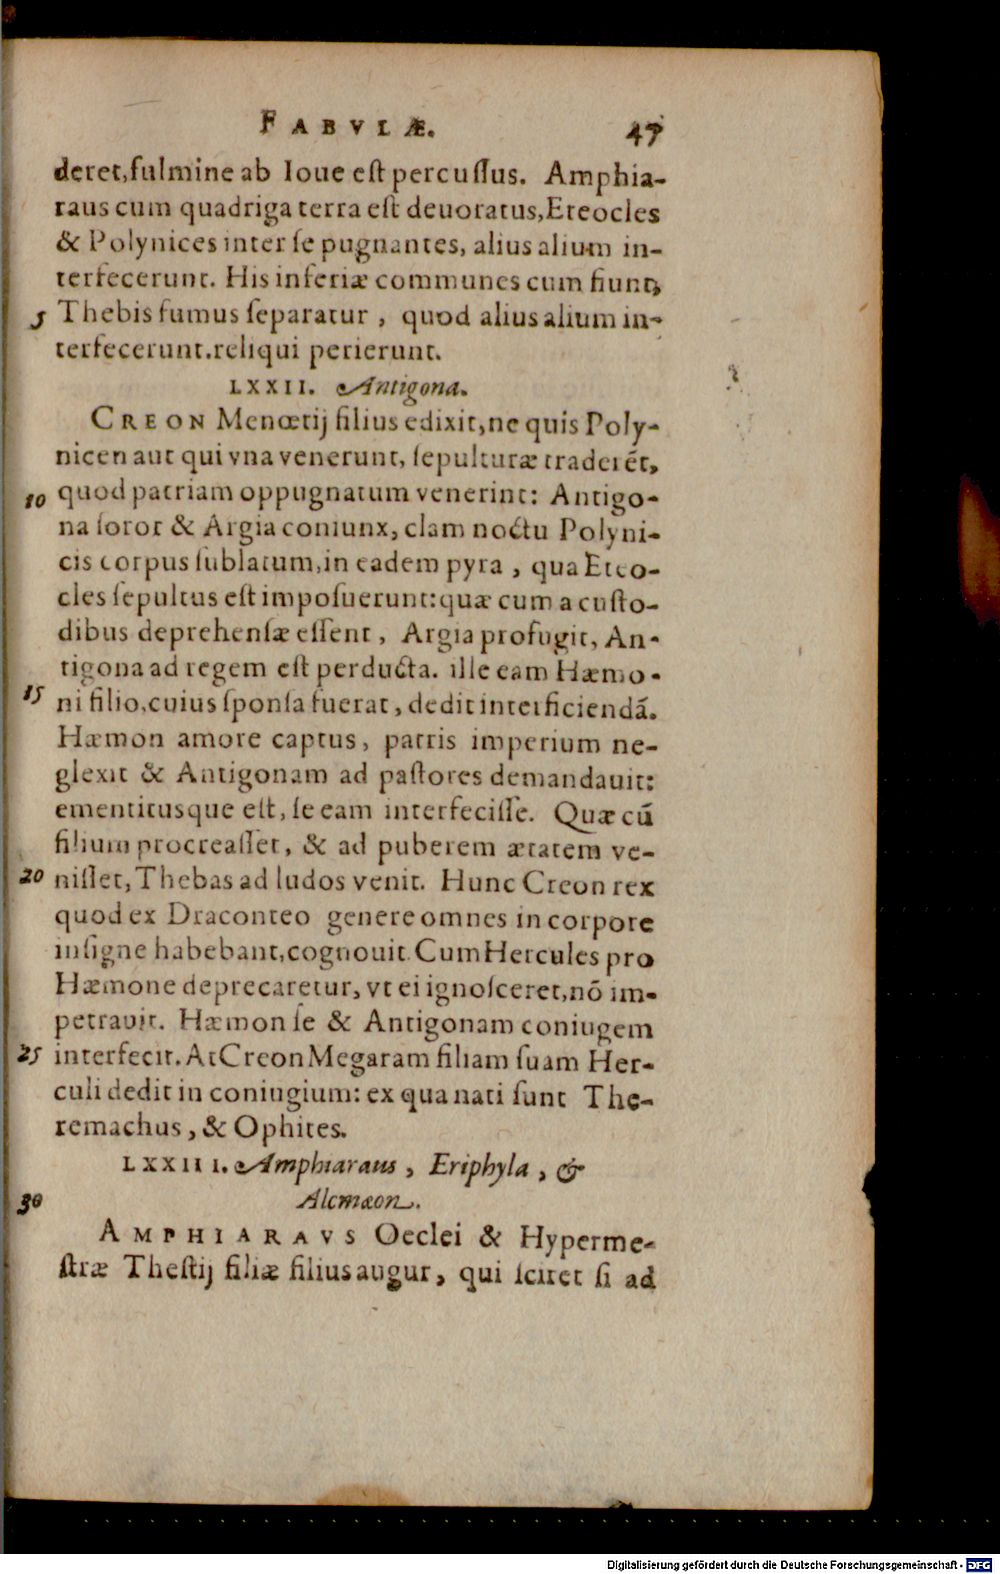 FABVLÆ. 47
deret,fulmine ab Ioue eſt percuſſus. Amphia-
raus cum quadriga terra eſt deuoratus,Eteocles
& Polynices inter ſe pugnantes, alius alium in-
terfecerunt. His inferiæ communes cum fiunt,
5 Thebis fumus ſeparatur, quod alius alium in-
terfecerunt.reliqui perierunt.
LXXII. Antigona.
CREON Menœtij filius edixit,ne quis Poly-
nicen aut qui vna venerunt, ſepulturæ traderẽt,
10 quod patriam oppugnatum venerint: Antigo-
na ſoror & Argia coniunx, clam noctu Polyni-
cis corpus ſublatum,in eadem pyra, qua Eteo-
cles ſepultus eſt impoſuerunt:quæ cum a cuſto-
dibus deprehenſæ eſſent, Argia profugit, An-
tigona ad regem eſt perducta. ille eam Hæmo-
15 ni filio,cuius ſponſa fuerat, dedit interficiendã.
Hæmon amore captus, patris imperium ne-
glexit & Antigonam ad paſtores demandauit:
ementitusque eſt, ſe eam interfeciſſe. Quæ cũ
filium procreaſſet, & ad puberem ætatem ve-
20 niſſet, Thebas ad ludos venit. Hunc Creon rex
quod ex Draconteo genere omnes in corpore
inſigne habebant,cognouit. Cum Hercules pro
Hæmone deprecaretur, vt ei ignoſceret,nõ im-
petrauit. Hæmon ſe & Antigonam coniugem
25 interfecit. At Creon Megaram filiam ſuam Her-
culi dedit in coniugium: ex qua nati ſunt The-
remachus, & Ophites.
LXXIII. Amphiaraus, Eriphyla, &
30 Alcmæon.
AMPHIARAVS Oeclei & Hyperme-
ſtræ Theſtij filiæ filius augur, qui ſciret ſi ad
Digitalisierung gefördert durch die Deutsche Forschungsgemeinschaft - DFG